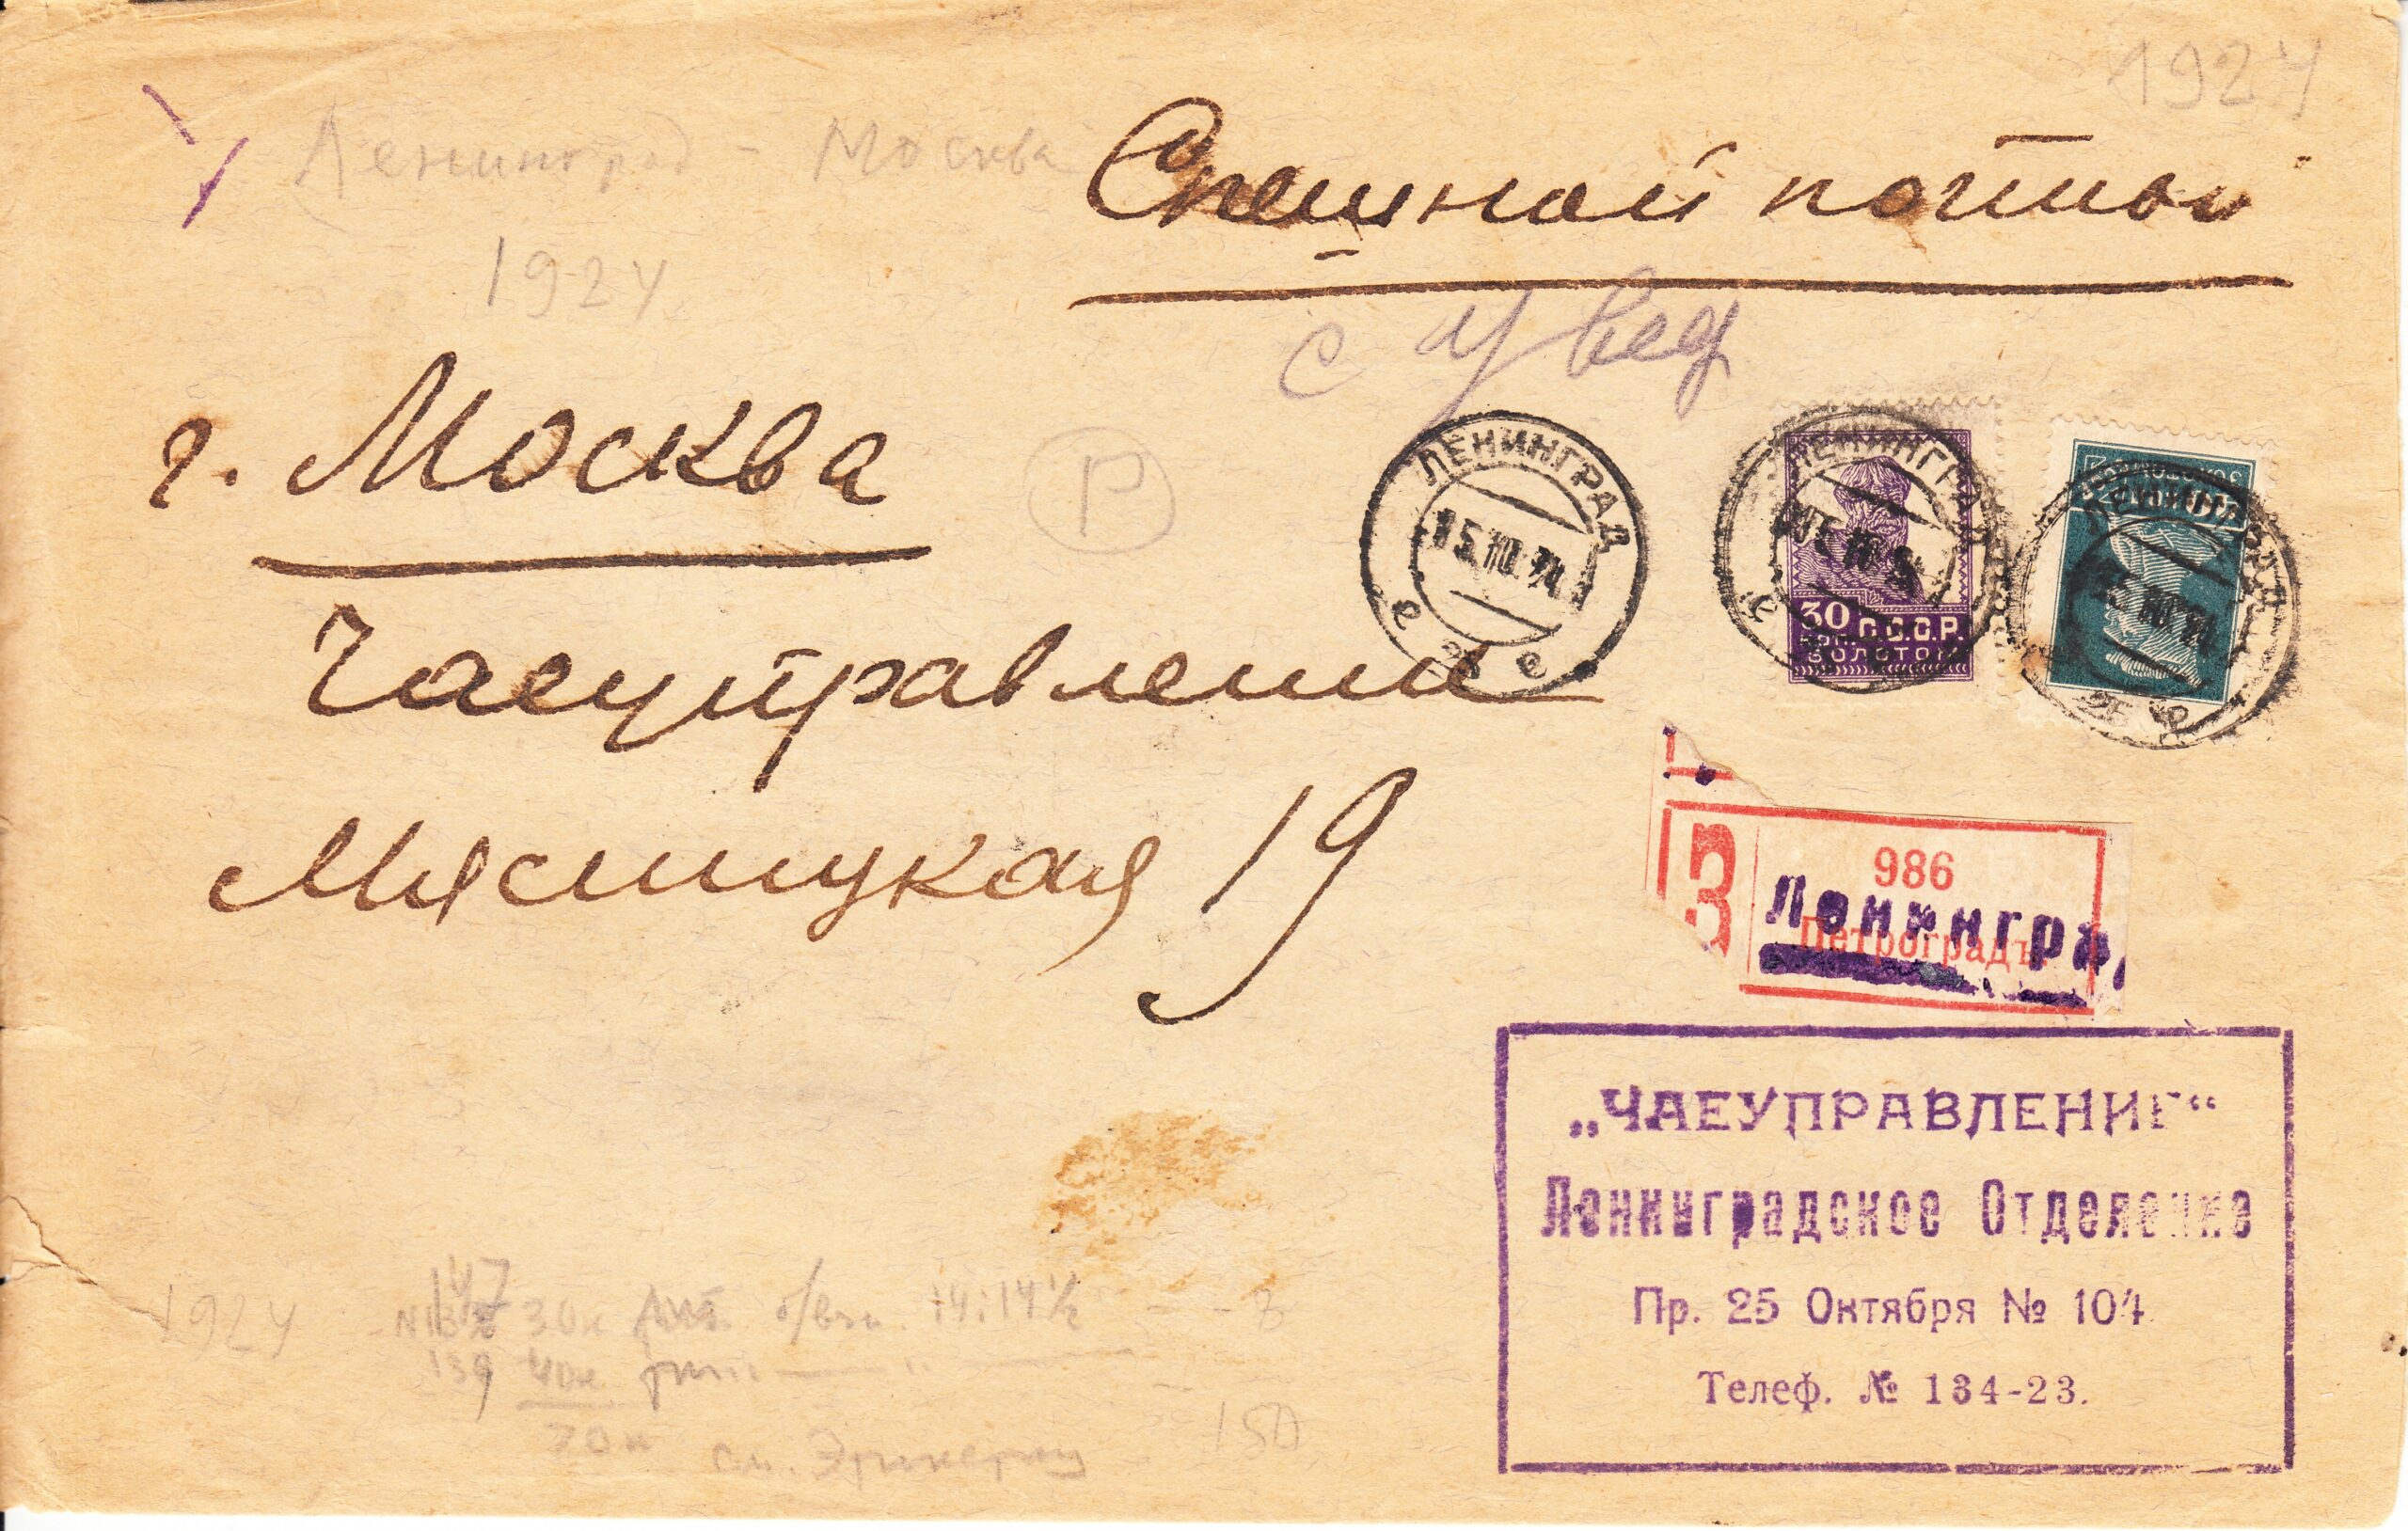 1924
Ленинград - Москва
1924
Спешной почтой
с увед
г. Москва
Р
Чаеуправление
Мясницкая 19
ЛЕНИНГРАД
15.10.24
ЛЕНИНГРАД
30 С.С.С.Р.
ЗОЛОТОМ
ЛЕНИНГРАД
З
986
Ленингра
Петроградъ
„ЧАЕУПРАВЛЕНИЕ“
Ленинградское Отделение
Пр. 25 Октября № 104
Телеф. № 134-23.
1924
147
30к 14:14½
139 40к
70к см.
150